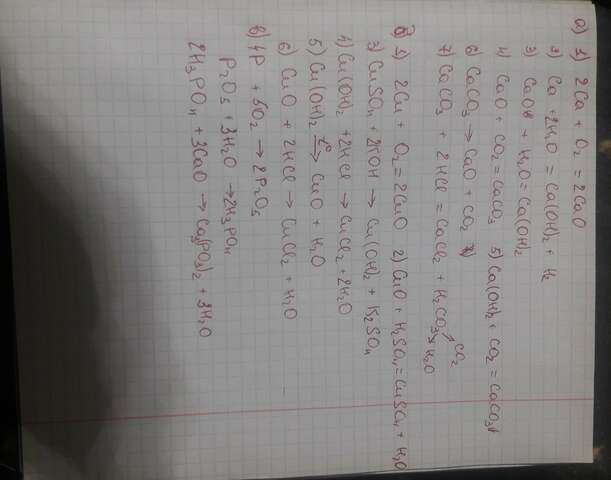 а) 1) 2Ca + O₂ = 2CaO
2) Ca + 2H₂O = Ca(OH)₂ + H₂
3) CaO + H₂O = Ca(OH)₂
4) CaO + CO₂ = CaCO₃ 5) Ca(OH)₂ + CO₂ = CaCO₃↓
6) CaCO₃ → CaO + CO₂
7) CaCO₃ + 2HCl = CaCl₂ + H₂CO₃ CO₂ H₂O
б) 1) 2Cu + O₂ = 2CuO 2) CuO + H₂SO₄ = CuSO₄ + H₂O
3) CuSO₄ + 2KOH → Cu(OH)₂ + K₂SO₄
4) Cu(OH)₂ + 2HCl → CuCl₂ + 2H₂O
5) Cu(OH)₂ t°→ CuO + H₂O
6) CuO + 2HCl → CuCl₂ + H₂O
в) 4P + 5O₂ → 2P₂O₅
P₂O₅ + 3H₂O → 2H₃PO₄
2H₃PO₄ + 3CaO → Ca₃(PO₃)₂ + 3H₂O